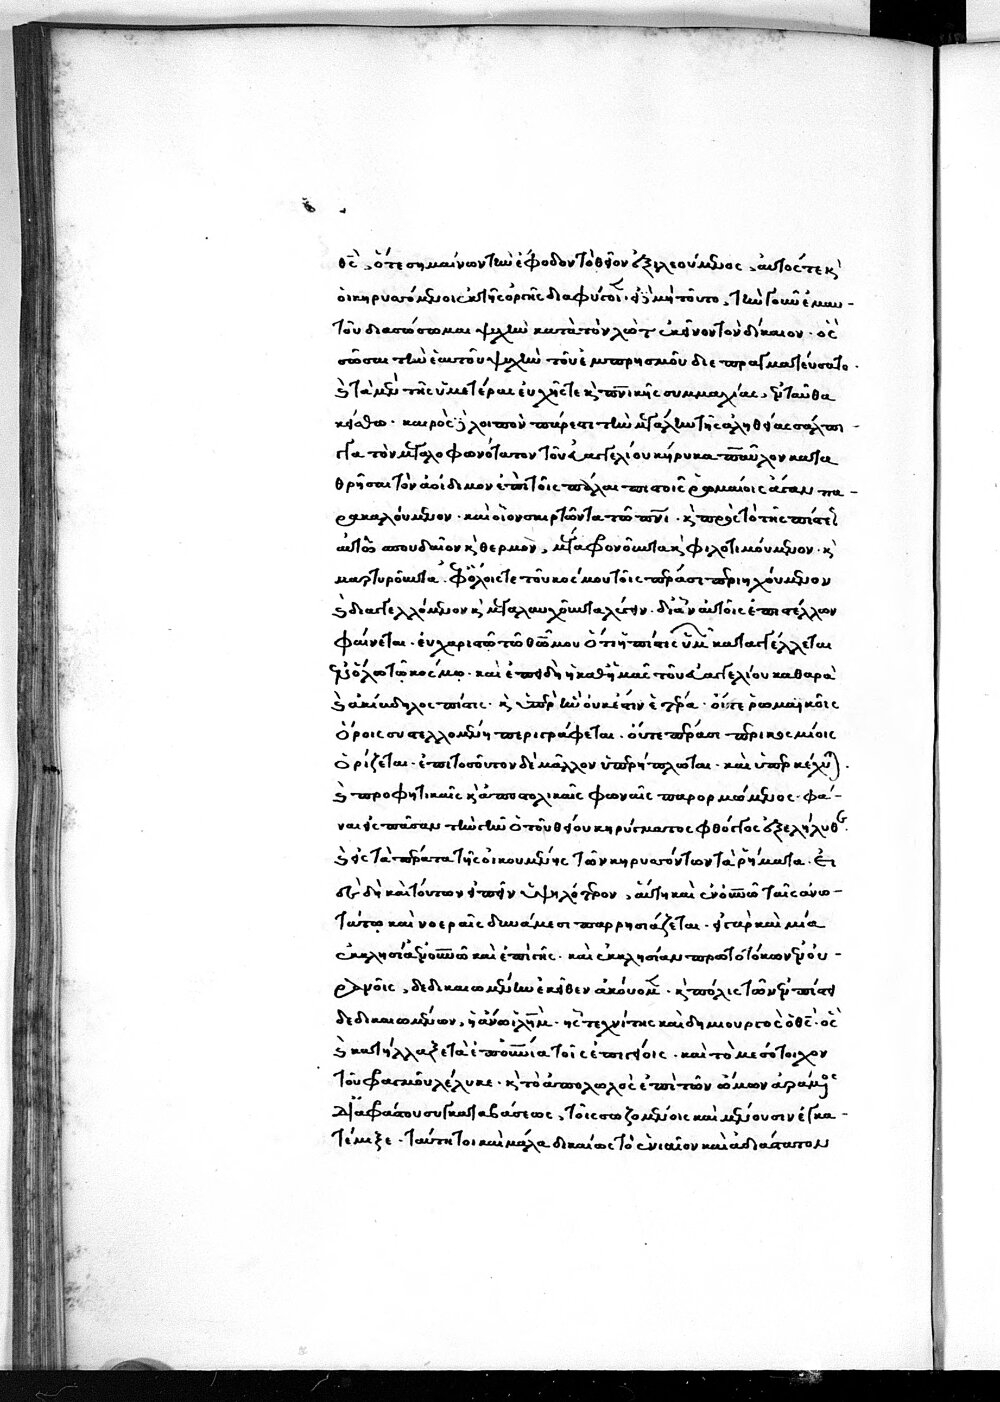 θς̅, ὅτε σημαίνων τὴν ἔφοδον τὸ θεῖον ἐξιλεούμενος, αὐτός τε κ(αὶ)
οἱ κηρυσσόμενοι ἐκ τῆς ὀργῆς διαφύγοι· εἰ μὴ τοῦτο, τὴν γοῦν ἐμαυ-
τοῦ διασώσομαι ψυχὴν κατὰ τὸν λὼτ ἐκεῖνον τὸν δίκαιον· ὃς
σῶσαι τὴν ἑαυτοῦ ψυχὴν τοῦ ἐμπρησμοῦ διεπραγματεύσατο·
τὰ μὲν τῆς ὑμετέρας εὐχῆς τε κ(αὶ) πνικῆς συμμαχίας, ἐνταῦθα
κείσθω· καιρὸς λοιπὸν πάρεστι τὴν μεγάλην τῆς ἀληθείας σάλπι-
γγα τὸν μεγαλοφωνότατον τοῦ εὐαγγελίου κήρυκα παῦλον κατα
θρῆσαι τὸν ἀοίδιμον ἐπὶ τοῖς πάλαι πιστοῖς ῥωμαίοις ἄγαν πα-
ρακαλούμενον· καὶ οἷον σκιρτῶντα τῶ πνι· κ(αὶ) πρὸς τὸ τῆς πίστε(ως)
αὐτῶν σπουδαῖον κ(αὶ) θερμὸν, μεγαφωνοῦντα κ(αὶ) φιλοτιμούμενον· κ(αὶ)
μαρτυροῦντα· ὅλοις τε τοῦ κόσμου τοῖς πέρασι περιηχούμενον
διαγγελλόμενον κ(αὶ) μεγαλαυχοῦντα λέγειν· δι' ὧν αὐτοῖς ἐπιστέλλων
φαίνεται· εὐχαριστῶ τῶ θεῶ μου ὅτι ἡ πίστις ὑμῶν καταγγέλλεται
ἐν ὅλω τῶ κόσμω· καὶ ἐπειδὴ ἡ καθ' ἡμᾶς τοῦ εὐαγγελίου καθαρὰ
ἀκίβδηλος πίστις· κ(αὶ) ὑπὲρ ἣν οὐκ ἔστιν ἑτέρα· οὔτε ῥωμαϊκοῖς
ὅροις συστελλομένη περιγράφεται· οὔτε πέρασι περικοσμίοις
ὁρίζεται· ἐπὶ τοσοῦτον δὲ μᾶλλον ὑπερήπλωται· καὶ ὑπερκέχυται·
προφητικαῖς κ(αὶ) ἀποστολικαῖς φωναῖς παρορμώμενος· φά-
ναι εἰς πᾶσαν τὴν γῆν ὁ τοῦ θείου κηρύγματος φθόγγος ἐξελήλυθε·
εἰς τὰ πέρατα τῆς οἰκουμένης τῶν κηρυσσόντων τὰ ῥήματα· Εἰ
δὲ δεῖ καὶ τούτων εἰπεῖν ὑψηλότερον, αὕτη καὶ ἐνώπιον ταῖς ἄνω-
τάτω καὶ νοεραῖς δυνάμεσι παρρησιάζεται· εἴπερ καὶ μία
ἐκκλησία καὶ ἐπὶ γῆς· καὶ ἐκκλησίαν πρωτοτόκων ἐν οὐ-
ρανοῖς, δεδικαιωμένην ἐκεῖθεν ἀκούομεν· κ(αὶ) πόλις τῶν ἐν πίστει
δεδικαιωμένων, ἡ ἄνω ἱλημ· ἧς τεχνίτης καὶ δημιουργὸς ὁ θς̅· ὃς
κατήλλαξε τὰ ἐπουράνια τοῖς ἐπιγείοις· καὶ τὸ μεσότοιχον
τοῦ φραγμοῦ λέλυκε· κ(αὶ) τὸ ἀπολωλὸς ἐπὶ τῶν ὤμων ἀράμενος
διὰ συγκαταβάσεως, τοῖς σωζομένοις καὶ μένουσιν ἐγκα-
τέμιξε· ταύτῃ τοι καὶ μάλα δικαίως τὸ ἑνιαῖον καὶ ἀδιάσπαστον